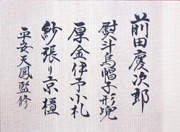 前田慶次郎
熨斗烏帽子形兜
厚金伊予小札
紗張り京楦
平安天鳳監修